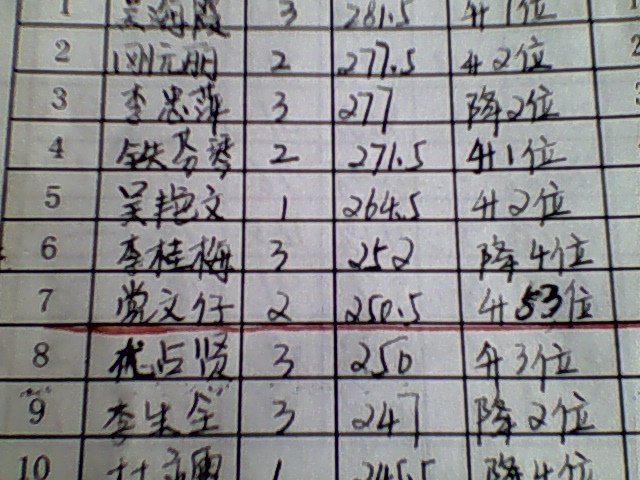 1 3 281.5 升1位
2 2 277.5 升2位
3 李忠萍 3 277 降2位
4 铁芬琴 2 271.5 升1位
5 吴艳文 1 264.5 升2位
6 李桂梅 3 252 降4位
7 党文仔 2 250.5 升53位
8 占贤 3 250 升3位
9 李生全 3 247 降2位
10 1 245.5 降4位